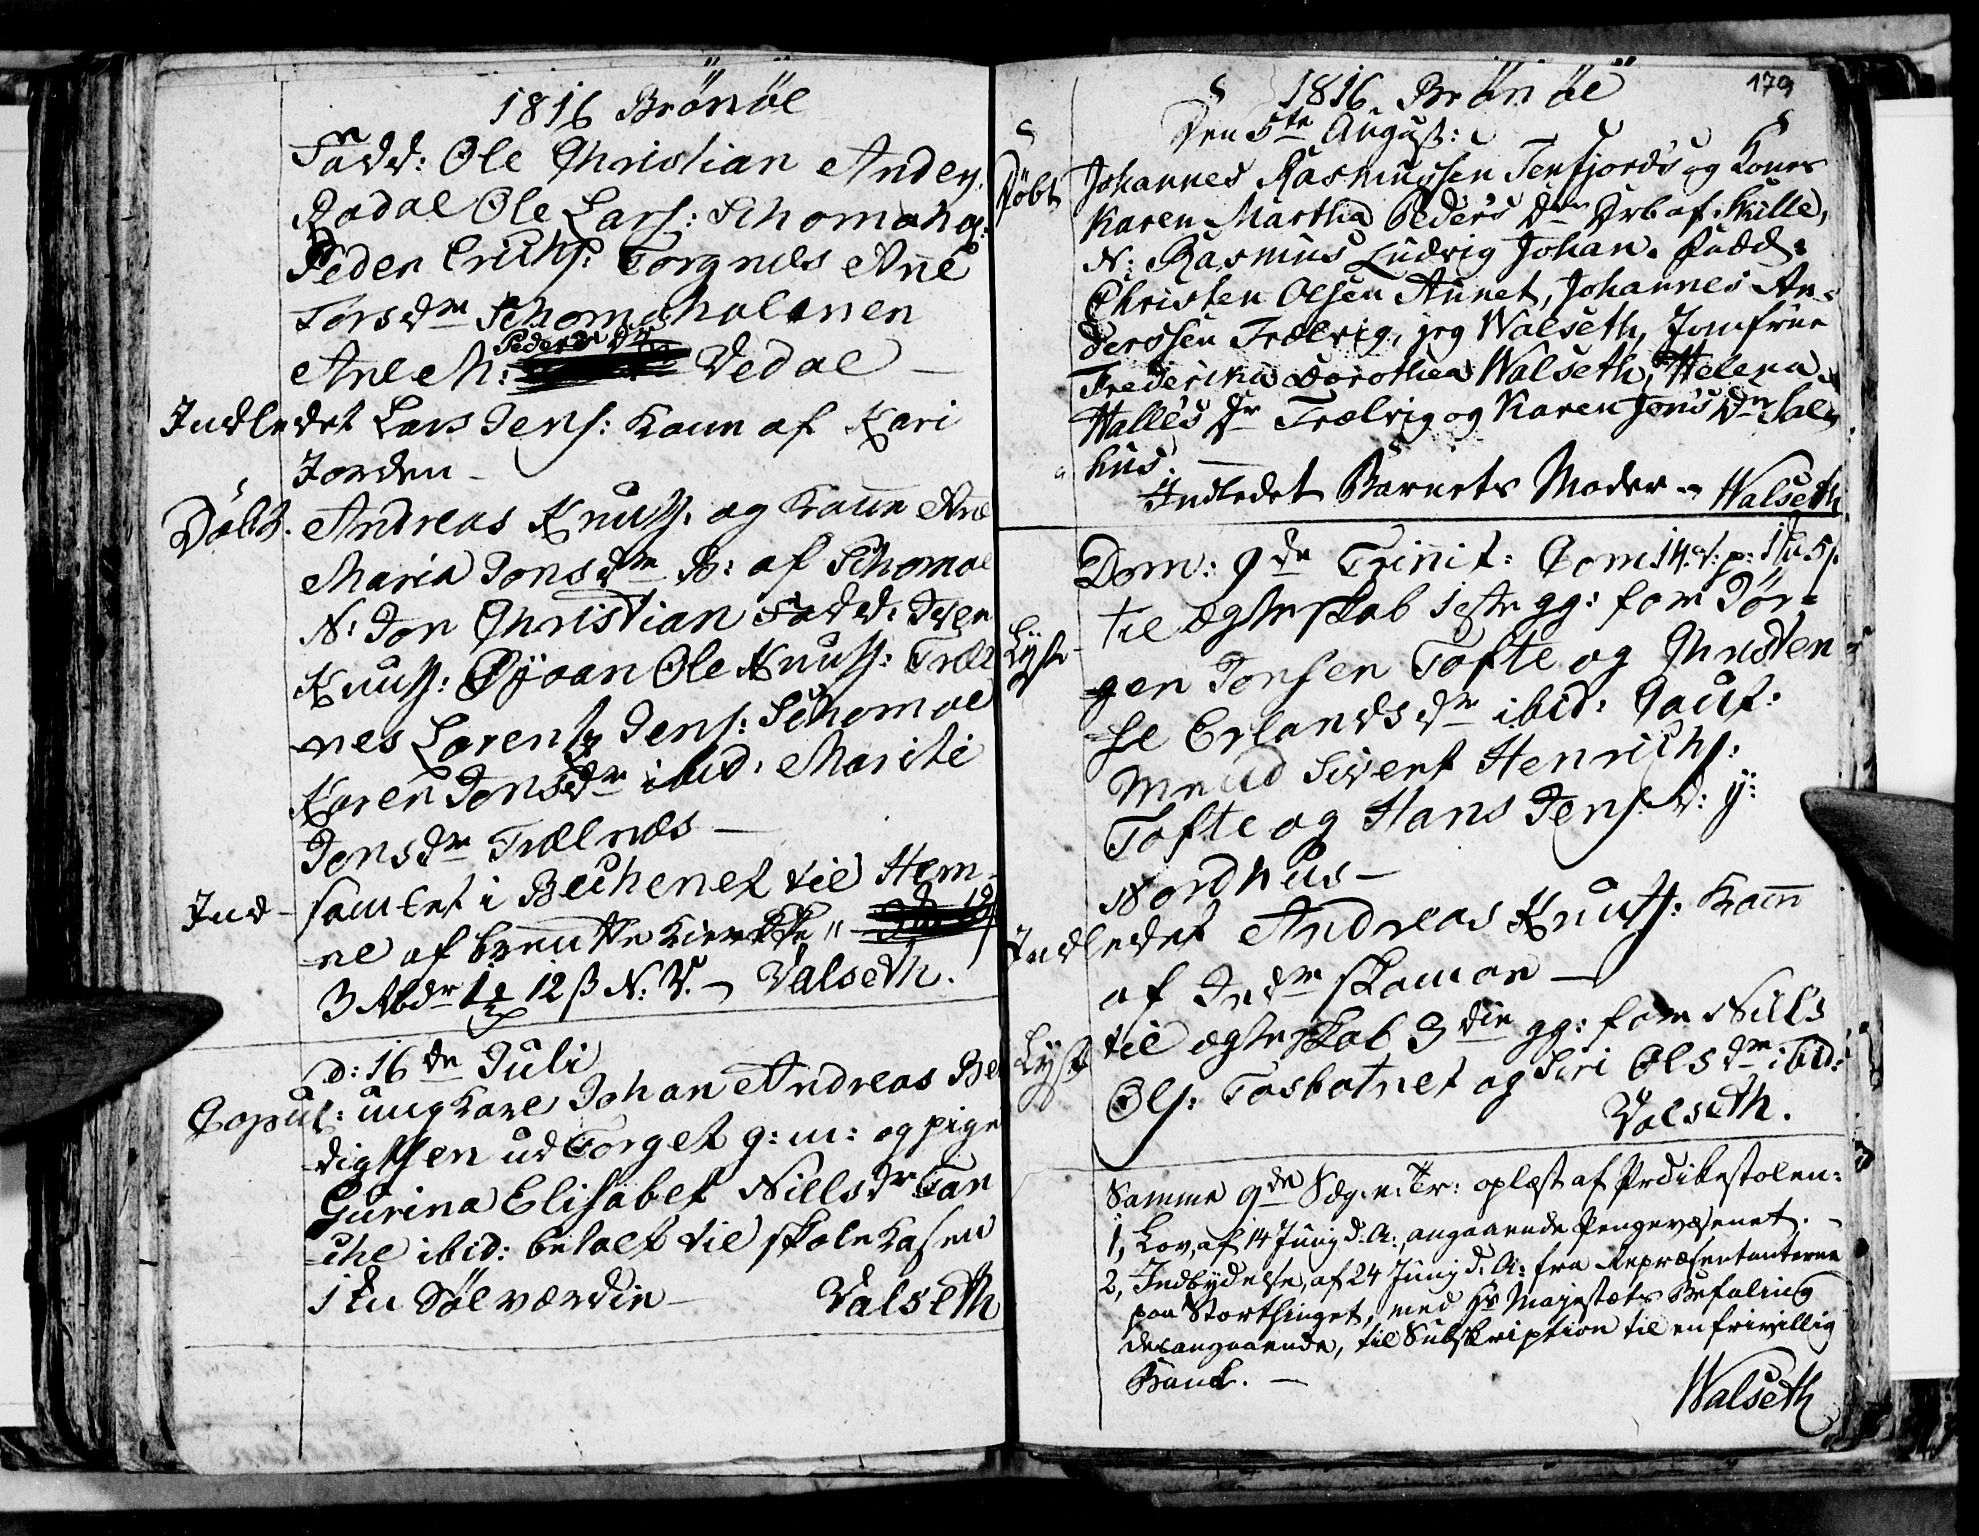 1816 Brönöe
Fadd: Ole Christian Anders.
Rodal Ole Lars: Schomoh og:
Peder Erichs: Torgnes Ane
Torsdr Schomoholmen
Peders dr
Ane M: Vedal —
Indledet Lars Jens: Kone af Kari
Jorden —
Döbt. Andreas Knuts: og Kone Ane
Maria Jonsdr B: af Schomoe
N: Jon Christian Fadd: Iver
Knuts: Öyoan Ole Knuts: Træl
nes Lorentz Jens: Schomoe
Karen Jonsdr ibid: Marite
Jonsdr Trælnæs —
Ind- samlet i Bechenet til Hem-
ne afbrendtte Kierkke
3 Rbdr 1½ 12 ß N. V. — Valseth.
d: 16de Juli
Copul: ungkarl Johan Andreas Be
digtsen ud Torget g: m: og pige
Gurina Elisabet Nillsdr Tan
che ibid: betalt til skolekasen
1 Sölværdie — Valseth
179
1816. Brönöe
Den 5te August:
Döbt Johannes Rasmussen Tenfjords og Kones
Karen Martha Peders Dr Drb af: Kulle,
N: Rasmus Ludvig Johan. Fadd:
Christen Olsen Aunet, Johannes An-
derssen Trælvig, jeg Walseth, Jomfrue
Frederika Dorothea Walseth, Helena
Halles Dr Trælvig og Karen Jons Dr Sal-
hus. —
Indledet Barnets Moder — Walseth
Dom: 9de Trinit: Com 14
Lyst til ægteskab 1ste gg: for Jör-
gen Jonsen Tofte og Christen
se Erlandsdr ibid: Caut:
Mend Sivert Henrichs:
Tofte og Hans Jens. d: y:
Nordhus —
Indledet Andreas Knuts: Kone
af Indr skomoe —
Lyst til ægteskab 3die gg: for Nills
Ols: Tosbotnet og Siri Olsdr ibid:
Valseth.
Samme 9de Søg. e. Tr: oplæst af Prdikestolen:
1, Lov, af 14 Junj d. A:, angaaende Pengevæsenet. —
2, Indbydelse, af 24 Junj d. A: fra Repræsentanterne
paa Storthinget, med Hs Majestæts Befaling
desangaaende, til Subskription til en frivillig
Bank. —
Walseth